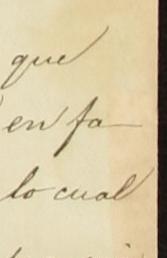 que
en fa
lo cual